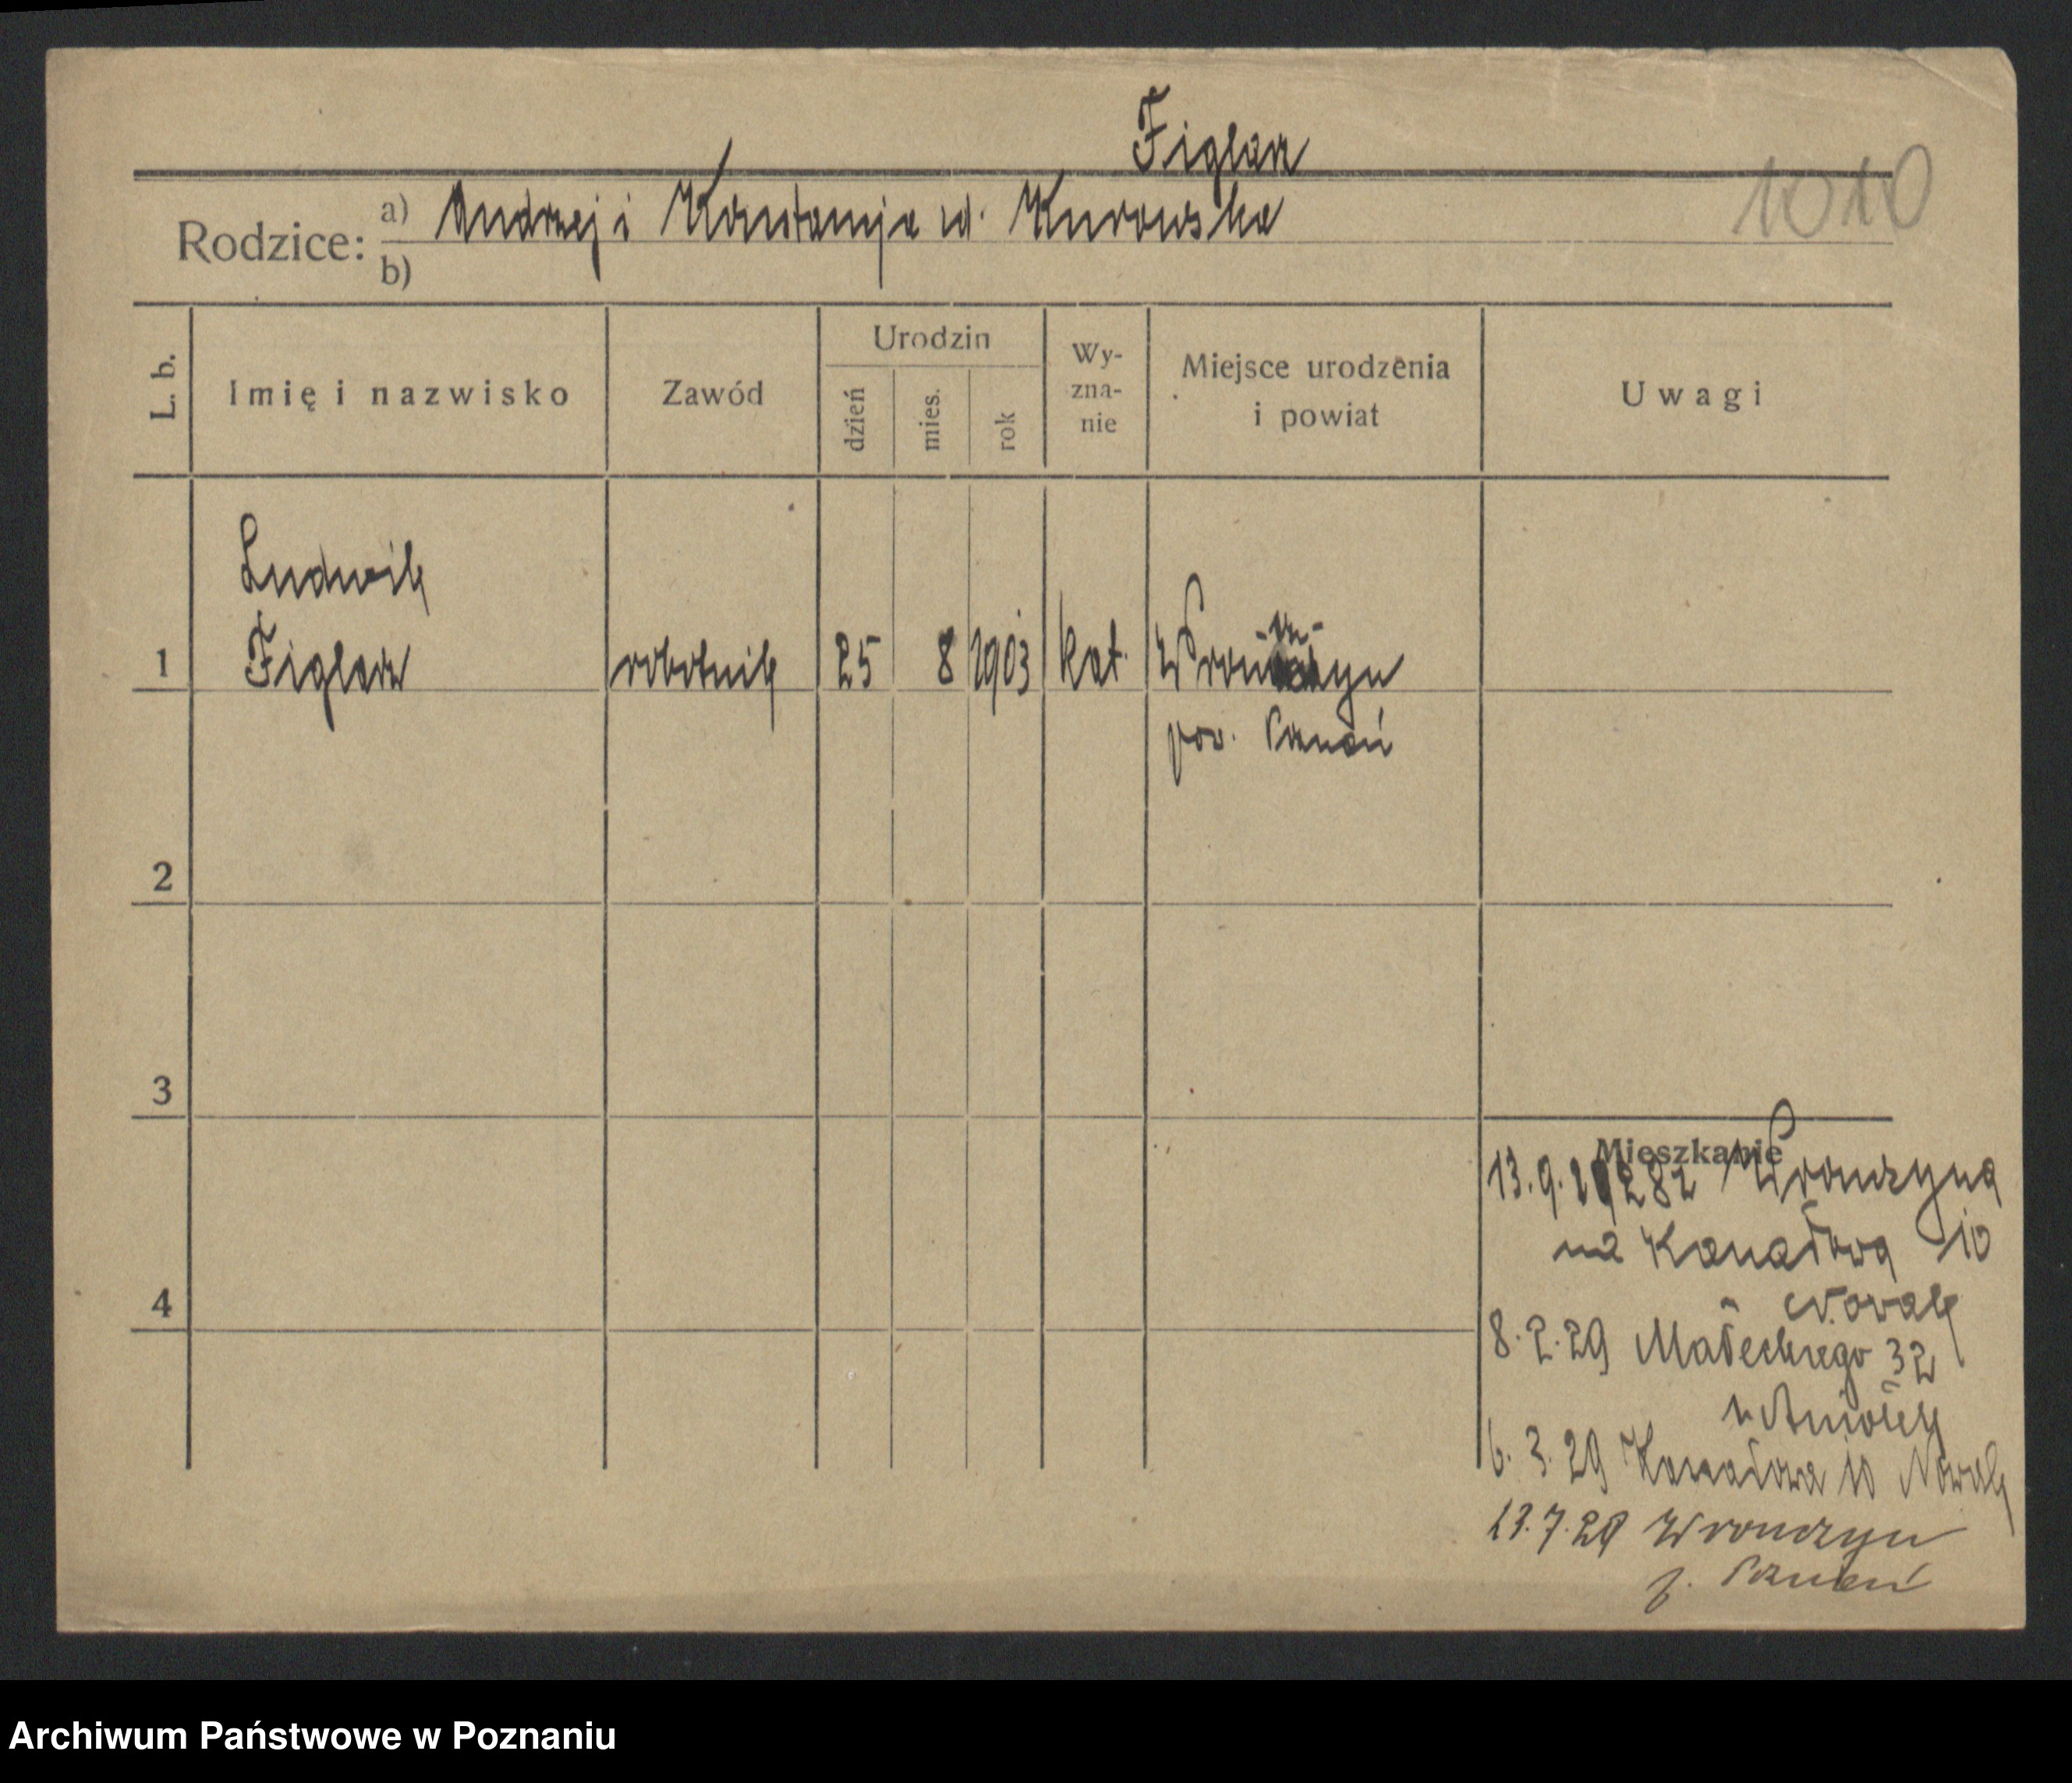 Figlarz
1010
Rodzice: a) Andrzej i Konstancja ur. Kurowska
b)
L. b.
Imię i nazwisko
Zawód
Urodzin
dzień
mies.
rok
Wy-
zna-
nie
Miejsce urodzenia
i powiat
Uwagi
Ludwik
1 Figlarz robotnik 25 8 1903 kat. Wronczyn
-cz-
pow. Poznań
2
3
4
Mieszkanie
13.9.1928 z Wronczyna
na Kanałową 10
Nowak
8.2.29 Małeckiego 32
u Aniołek
6.3.29 Kanałowa 10 Nowak
13.7.29 Wronczyn
p. Poznań
Archiwum Państwowe w Poznaniu